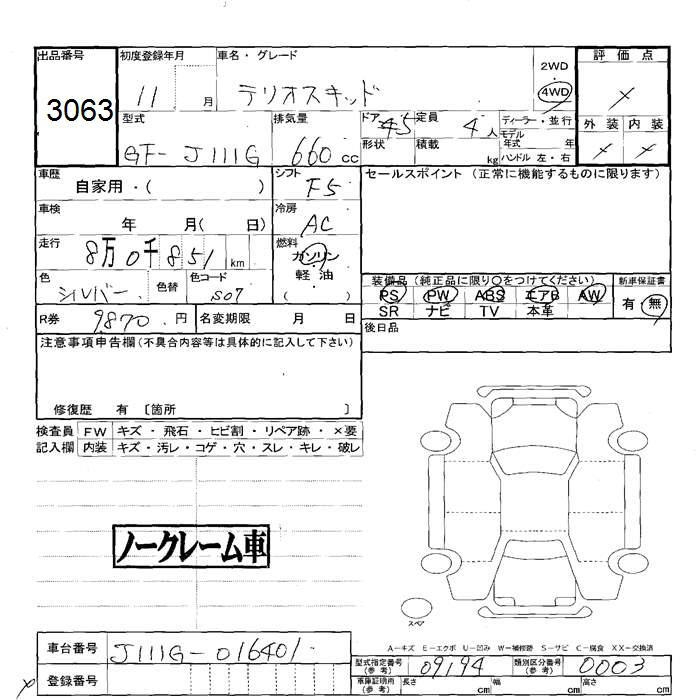 出品番号 初度登録年月 車名・グレード 2WD 評価点
3063 11 月 テリオスキッド 4WD ×
型式 排気量 ドア 定員 ディーラー・並行 外装 内装
GF-J111G 660 cc 5 4人 モデル × ×
形状 積載 kg 年式 年
ハンドル 左・右
車歴 自家用・( ) シフト F5 セールスポイント(正常に機能するものに限ります)
車検 年 月( 日) 冷房 AC
走行 8万0千851 km 燃料 ガソリン
軽油
( )
色 シルバー 色替 色コード S07
装備品(純正品に限り〇をつけてください) 新車保証書
PS PW ABS エアB AW 有・無
SR ナビ TV 本革
R券 9870円 名変期限 月 日 後日品
注意事項申告欄(不具合内容等は具体的に記入して下さい)
修復歴 有 〔箇所 〕
検査員 FW キズ・飛石・ヒビ割・リペア跡・×要
記入欄 内装 キズ・汚レ・コゲ・穴・スレ・キレ・破レ
ノークレーム車
スペア
A-キズ E-エクボ U-凹み W-補修跡 S-サビ C-腐食 XX-交換済
車台番号 J111G-016401
型式指定番号(参考) 09194 類別区分番号(参考) 0003
登録番号 車庫証明用(参考) 長さ cm 幅 cm 高さ cm